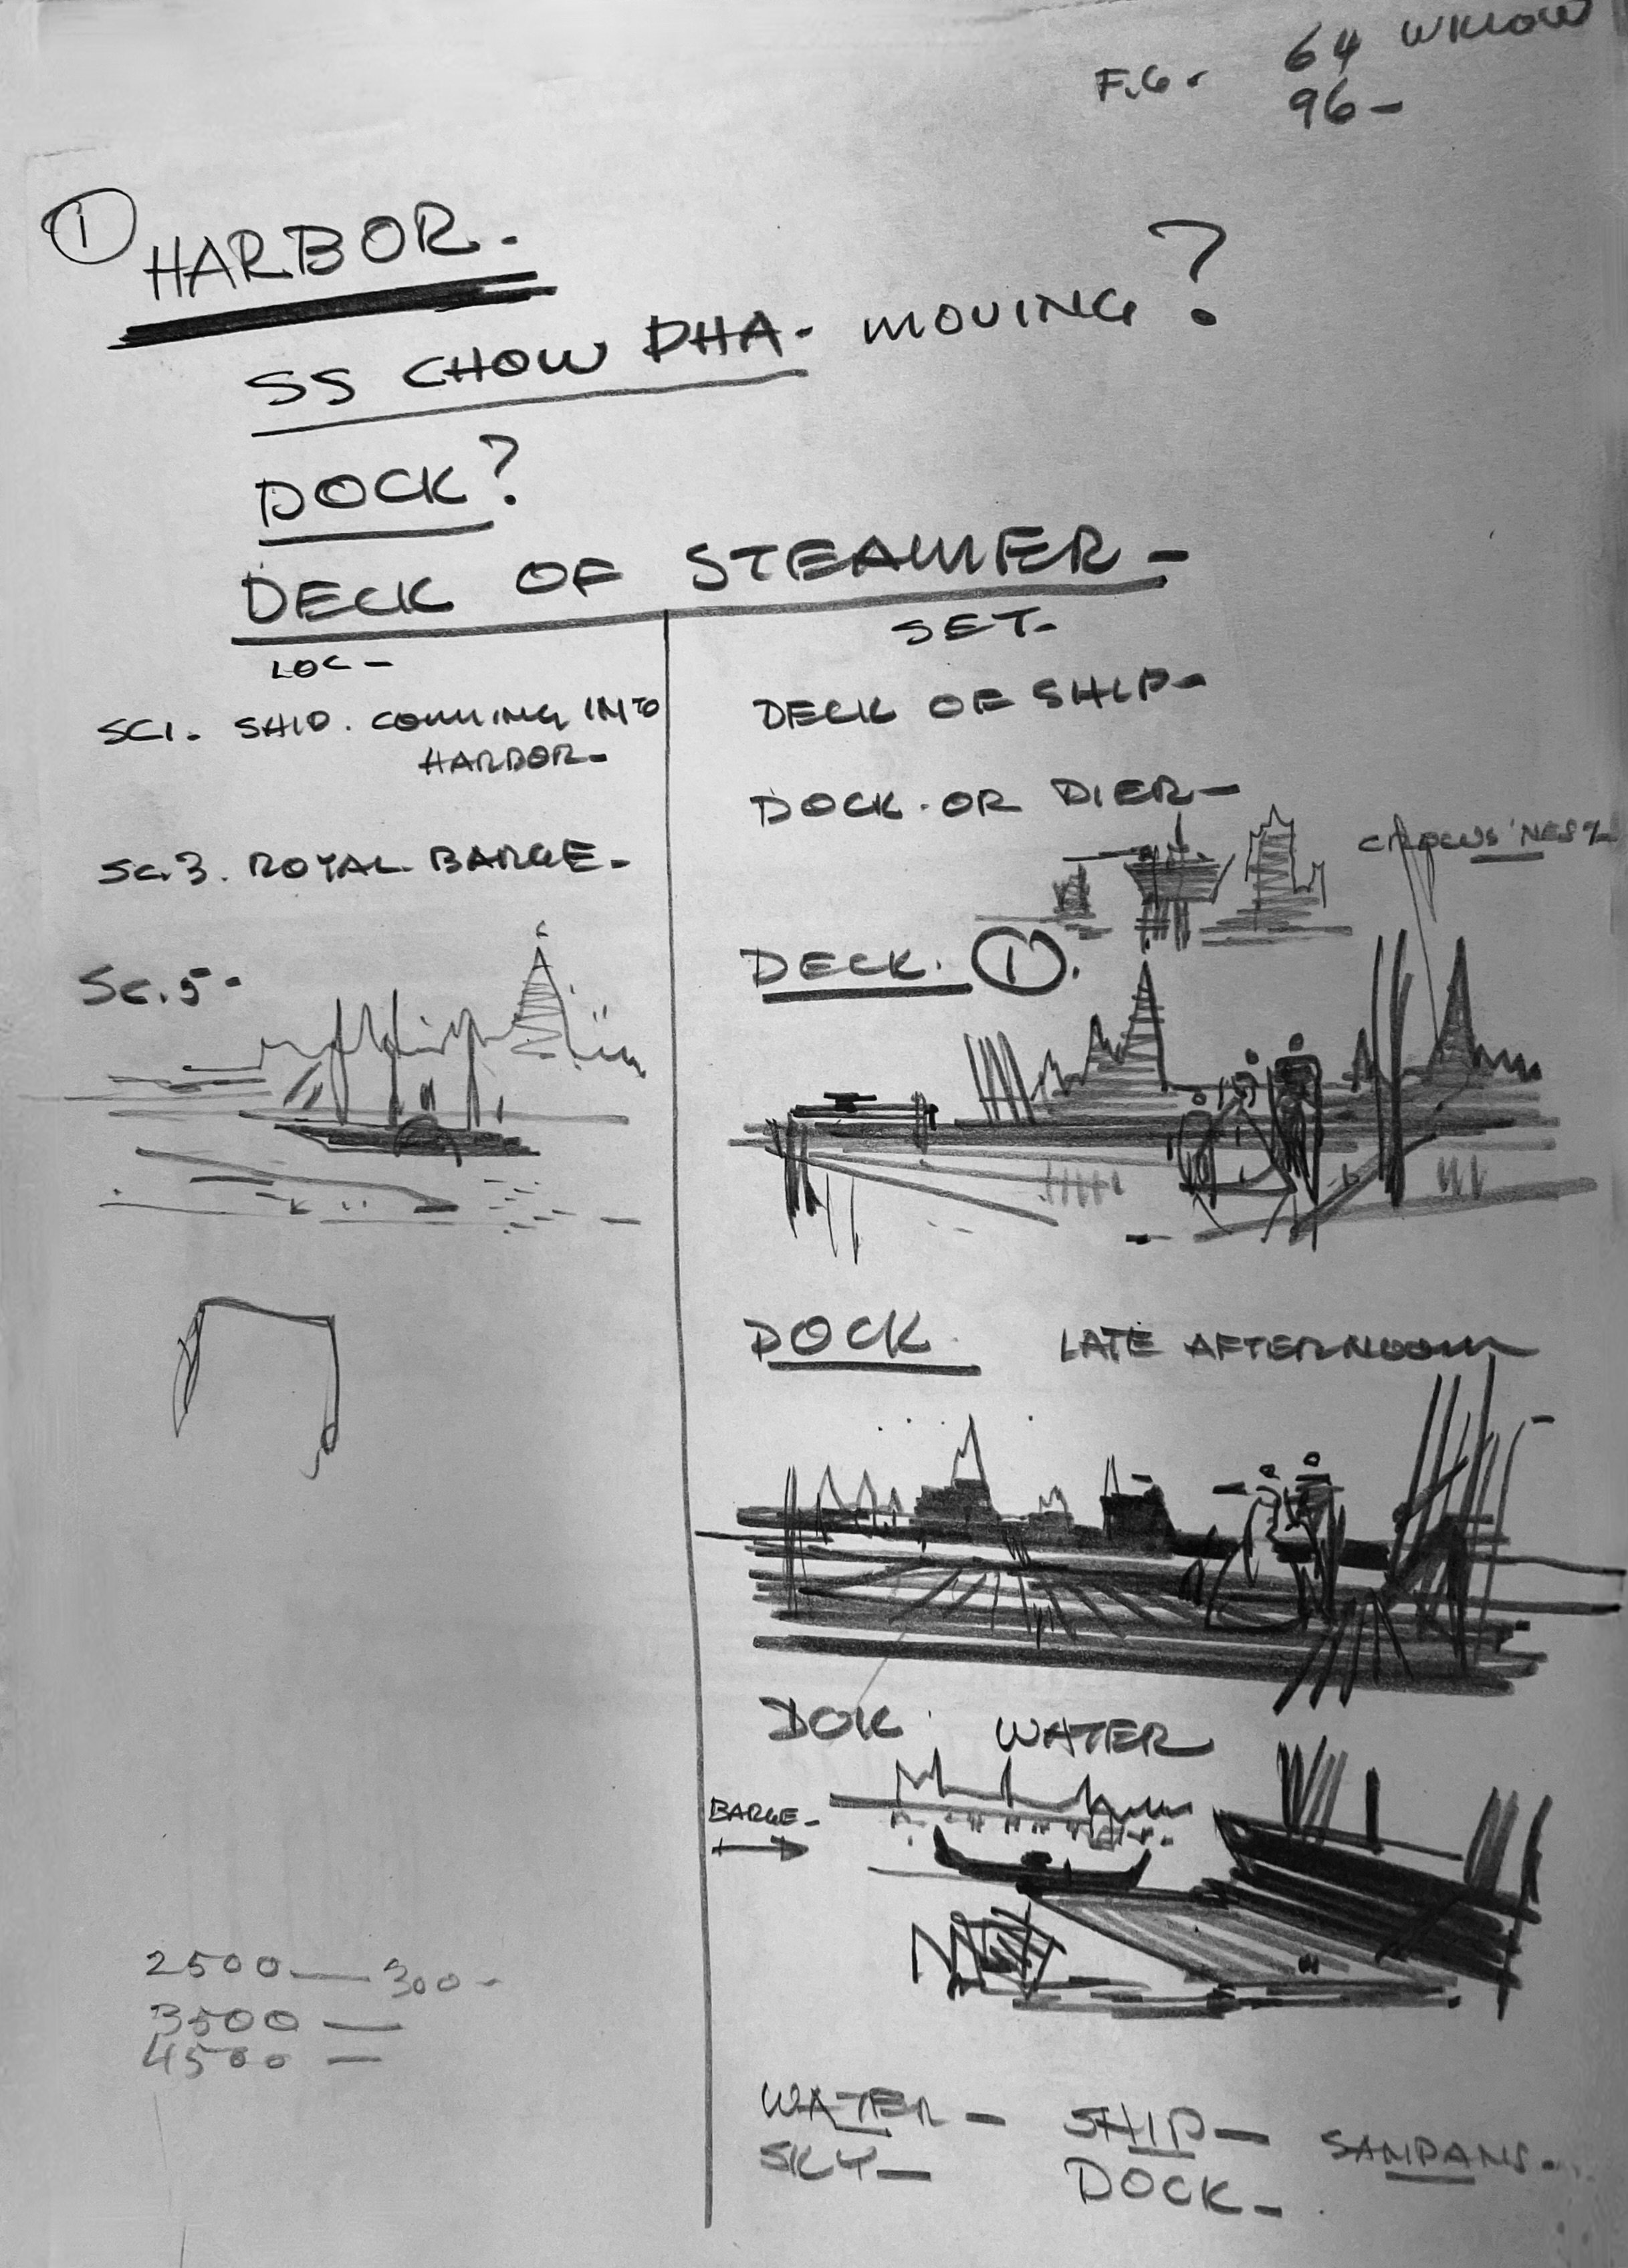 64 WILLOW
F.G. 96-
① HARBOR.-
SS CHOW PHA- MOVING?
DOCK?
DECK OF STEAMER-
LOC-
SC1. SHIP. COMING INTO
HARBOR-
SC.3. ROYAL BARGE-
SC.5-
2500—300-
3500—
4500—
SET-
DECK OF SHIP-
DOCK. OR PIER-
CROWS' NEST-
DECK. ①.
DOCK. LATE AFTERNOON
DOK. WATER
BARGE-
WATER- SHIP- SAMPANS-
SKY- DOCK-